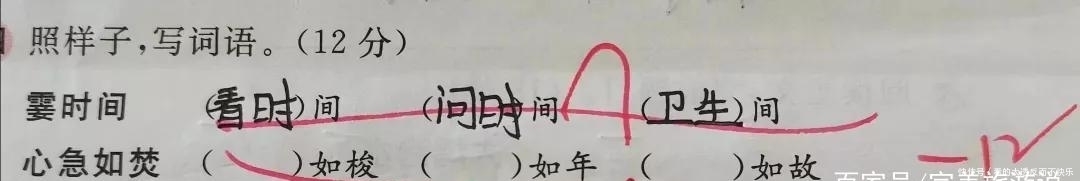 照样子，写词语。（12分）
霎时间 （看时）间 （问时）间 （卫生）间
心急如焚 （ ）如梭 （ ）如年 （ ）如故
-12